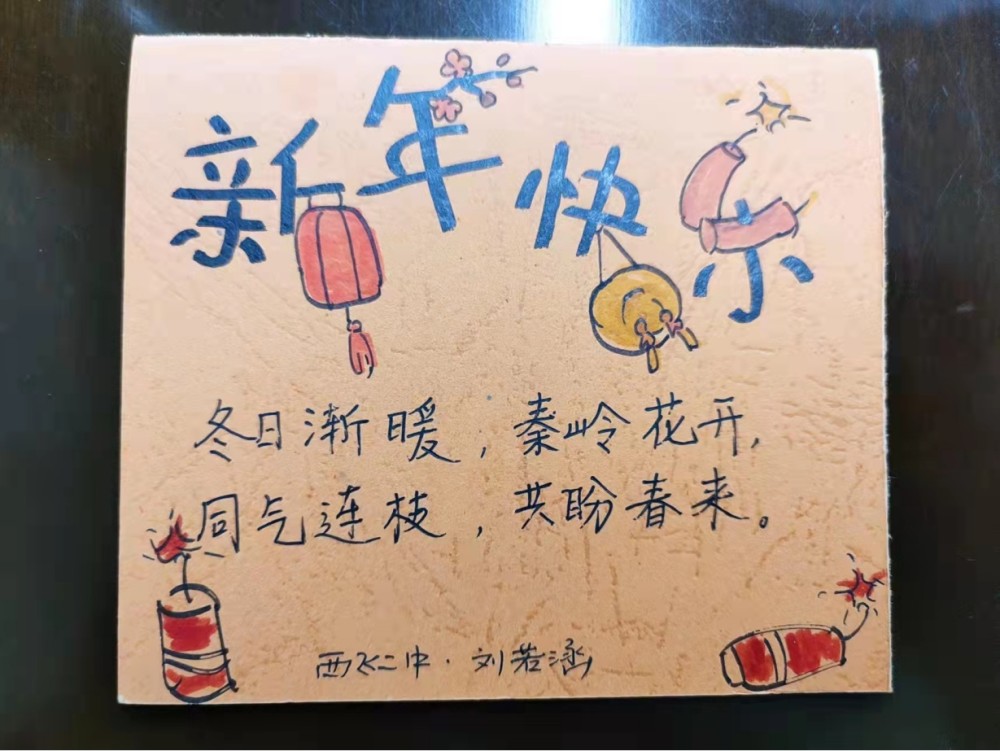 新年快乐
冬日渐暖，秦岭花开，
同气连枝，共盼春来。
西飞二中·刘若涵